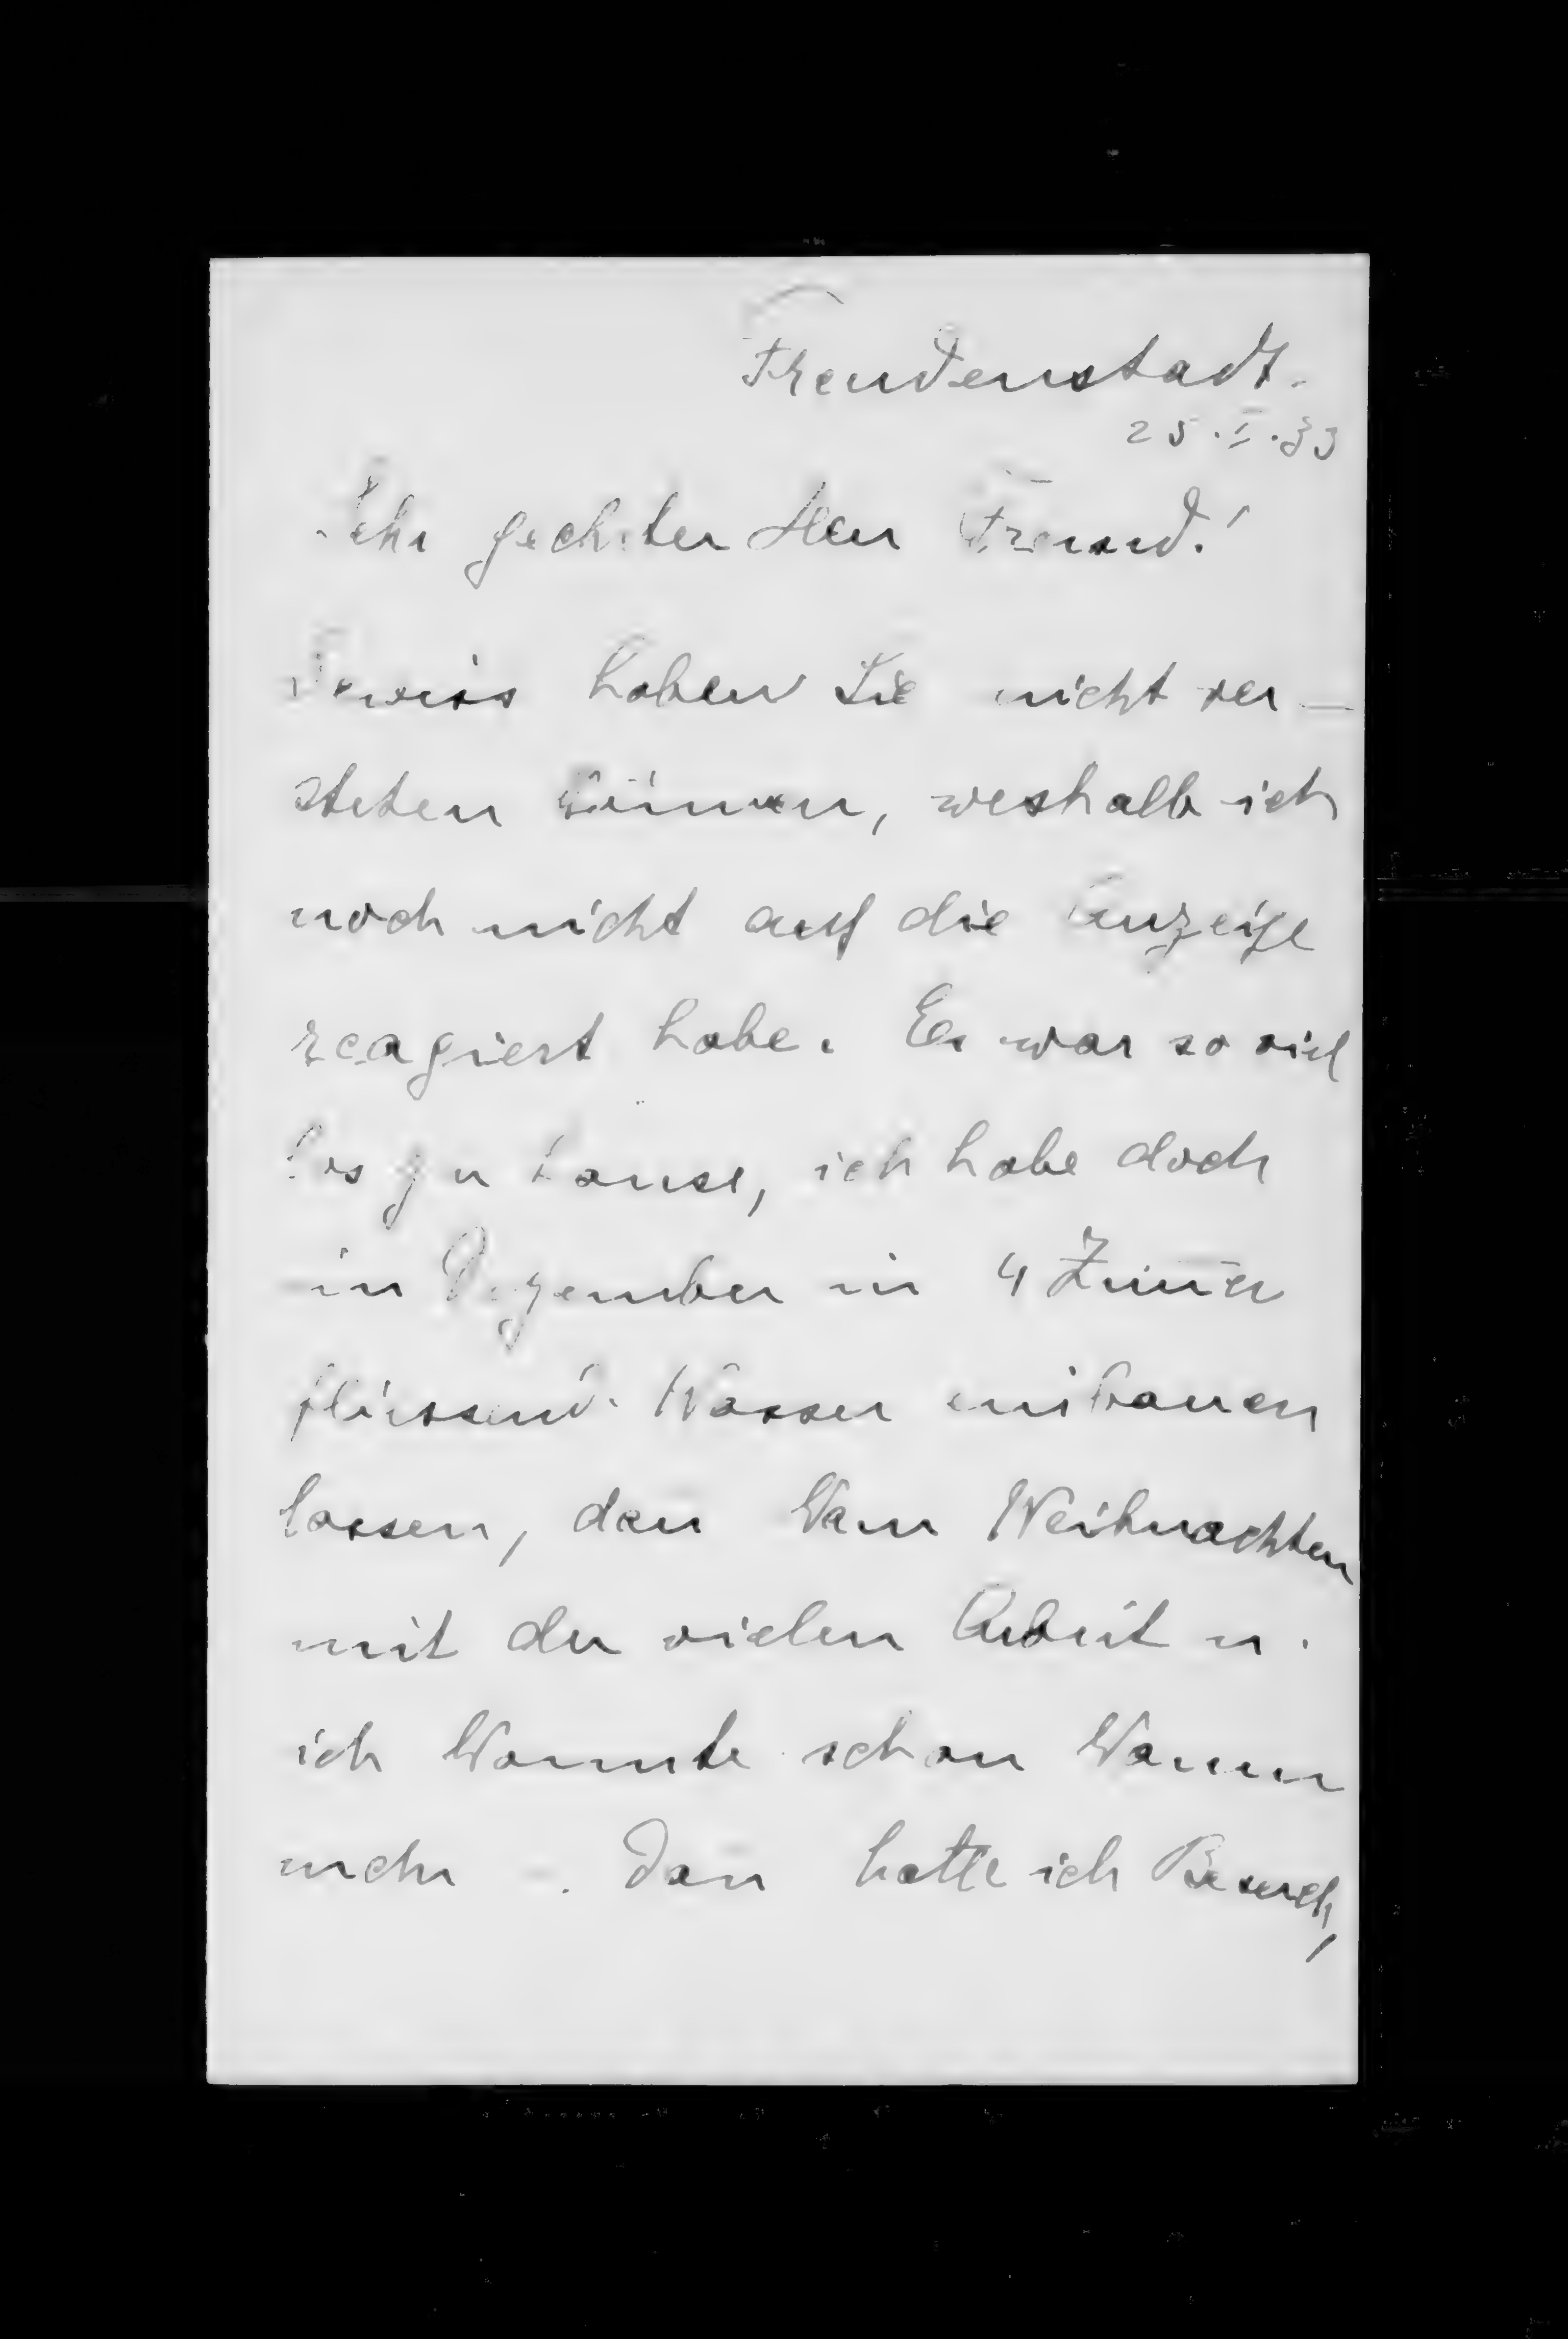 Freudenstadt.
25.I.33
Sehr geehrter Herr Freund!
Gewiss haben Sie nicht ver-
stehen können, weshalb ich
noch nicht auf die Anzeige
reagiert habe. Es war so viel
los zu Hause, ich habe doch
im Dezember in 4 Zim̄er
fliessend. Wasser einbauen
lassen, dan̄ kam Weihnachten
mit der vielen Arbeit u.
ich konnte schon kaum
mehr. Dan̄ hatte ich Besuch,